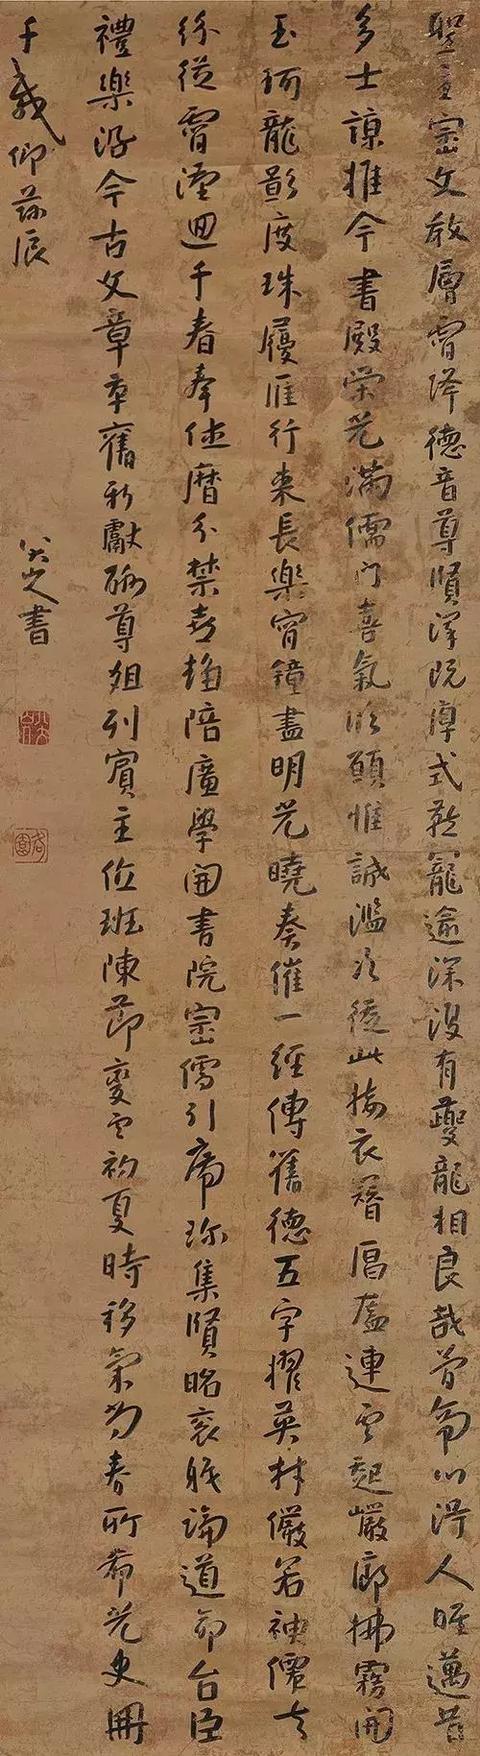 聖主崇文教層霄降德音尊賢澤既厚式宴寵逾深復有夔龍相良哉簡帝心得人唯邁昔
多士諒推今書殿榮光滿儒門喜氣臨顧惟誠濫次從此接衣簪閶闔連雲起巖廊拂霧開
玉珂龍影度珠履雁行來長樂宵鐘盡明光曉奏催一經傳舊德五字擢英材儼若神仙去
紛從霄漢迴千春奉休曆分禁喜趨陪廣學開書院崇儒引席珍集賢昭袞職論道命台臣
禮樂沿今古文章革舊新獻酬尊俎列賓主位班陳節變雲初夏時移氣尚春所希光史冊
千載仰茲辰
八大山人書